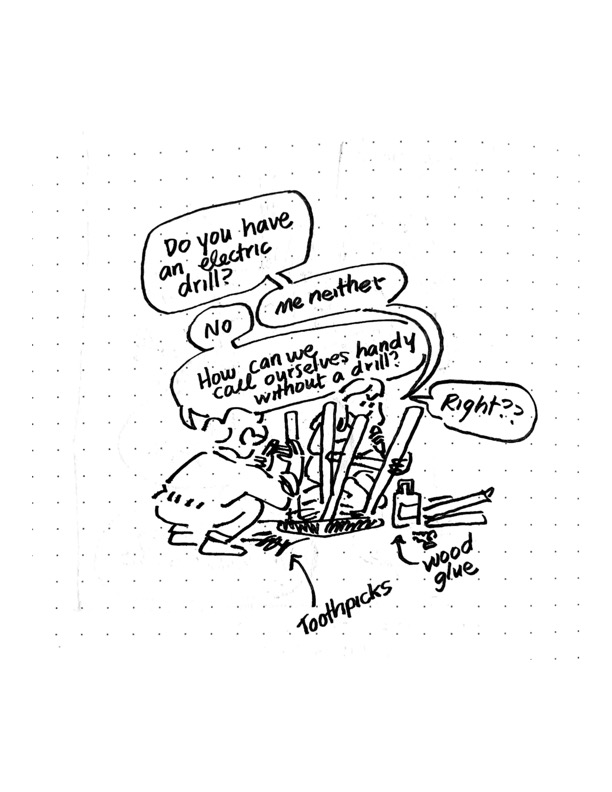 Do you have
an electric
drill?
me neither
No
How can we
call ourselves handy
without a drill?
Right??
wood
glue
Toothpicks